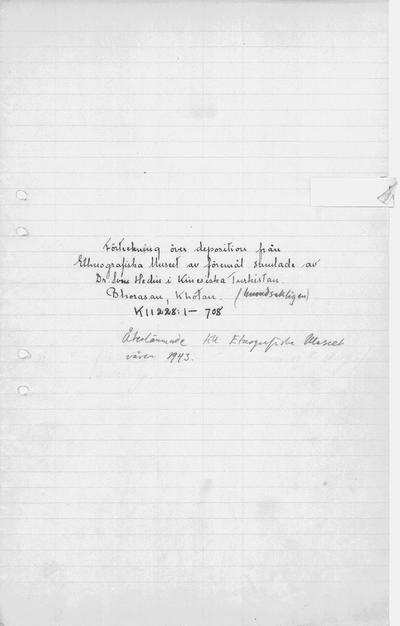 Förteckning över deposition från
Ethnografiska Museet av föremål samlade av
Dr. Sven Hedin i Kinesiska Turkistan.
Bhorasan, Khotan. (huvudsakligen)
K11228:1– 708
Återlämnade till Etnografiska Museet
våren 1943.